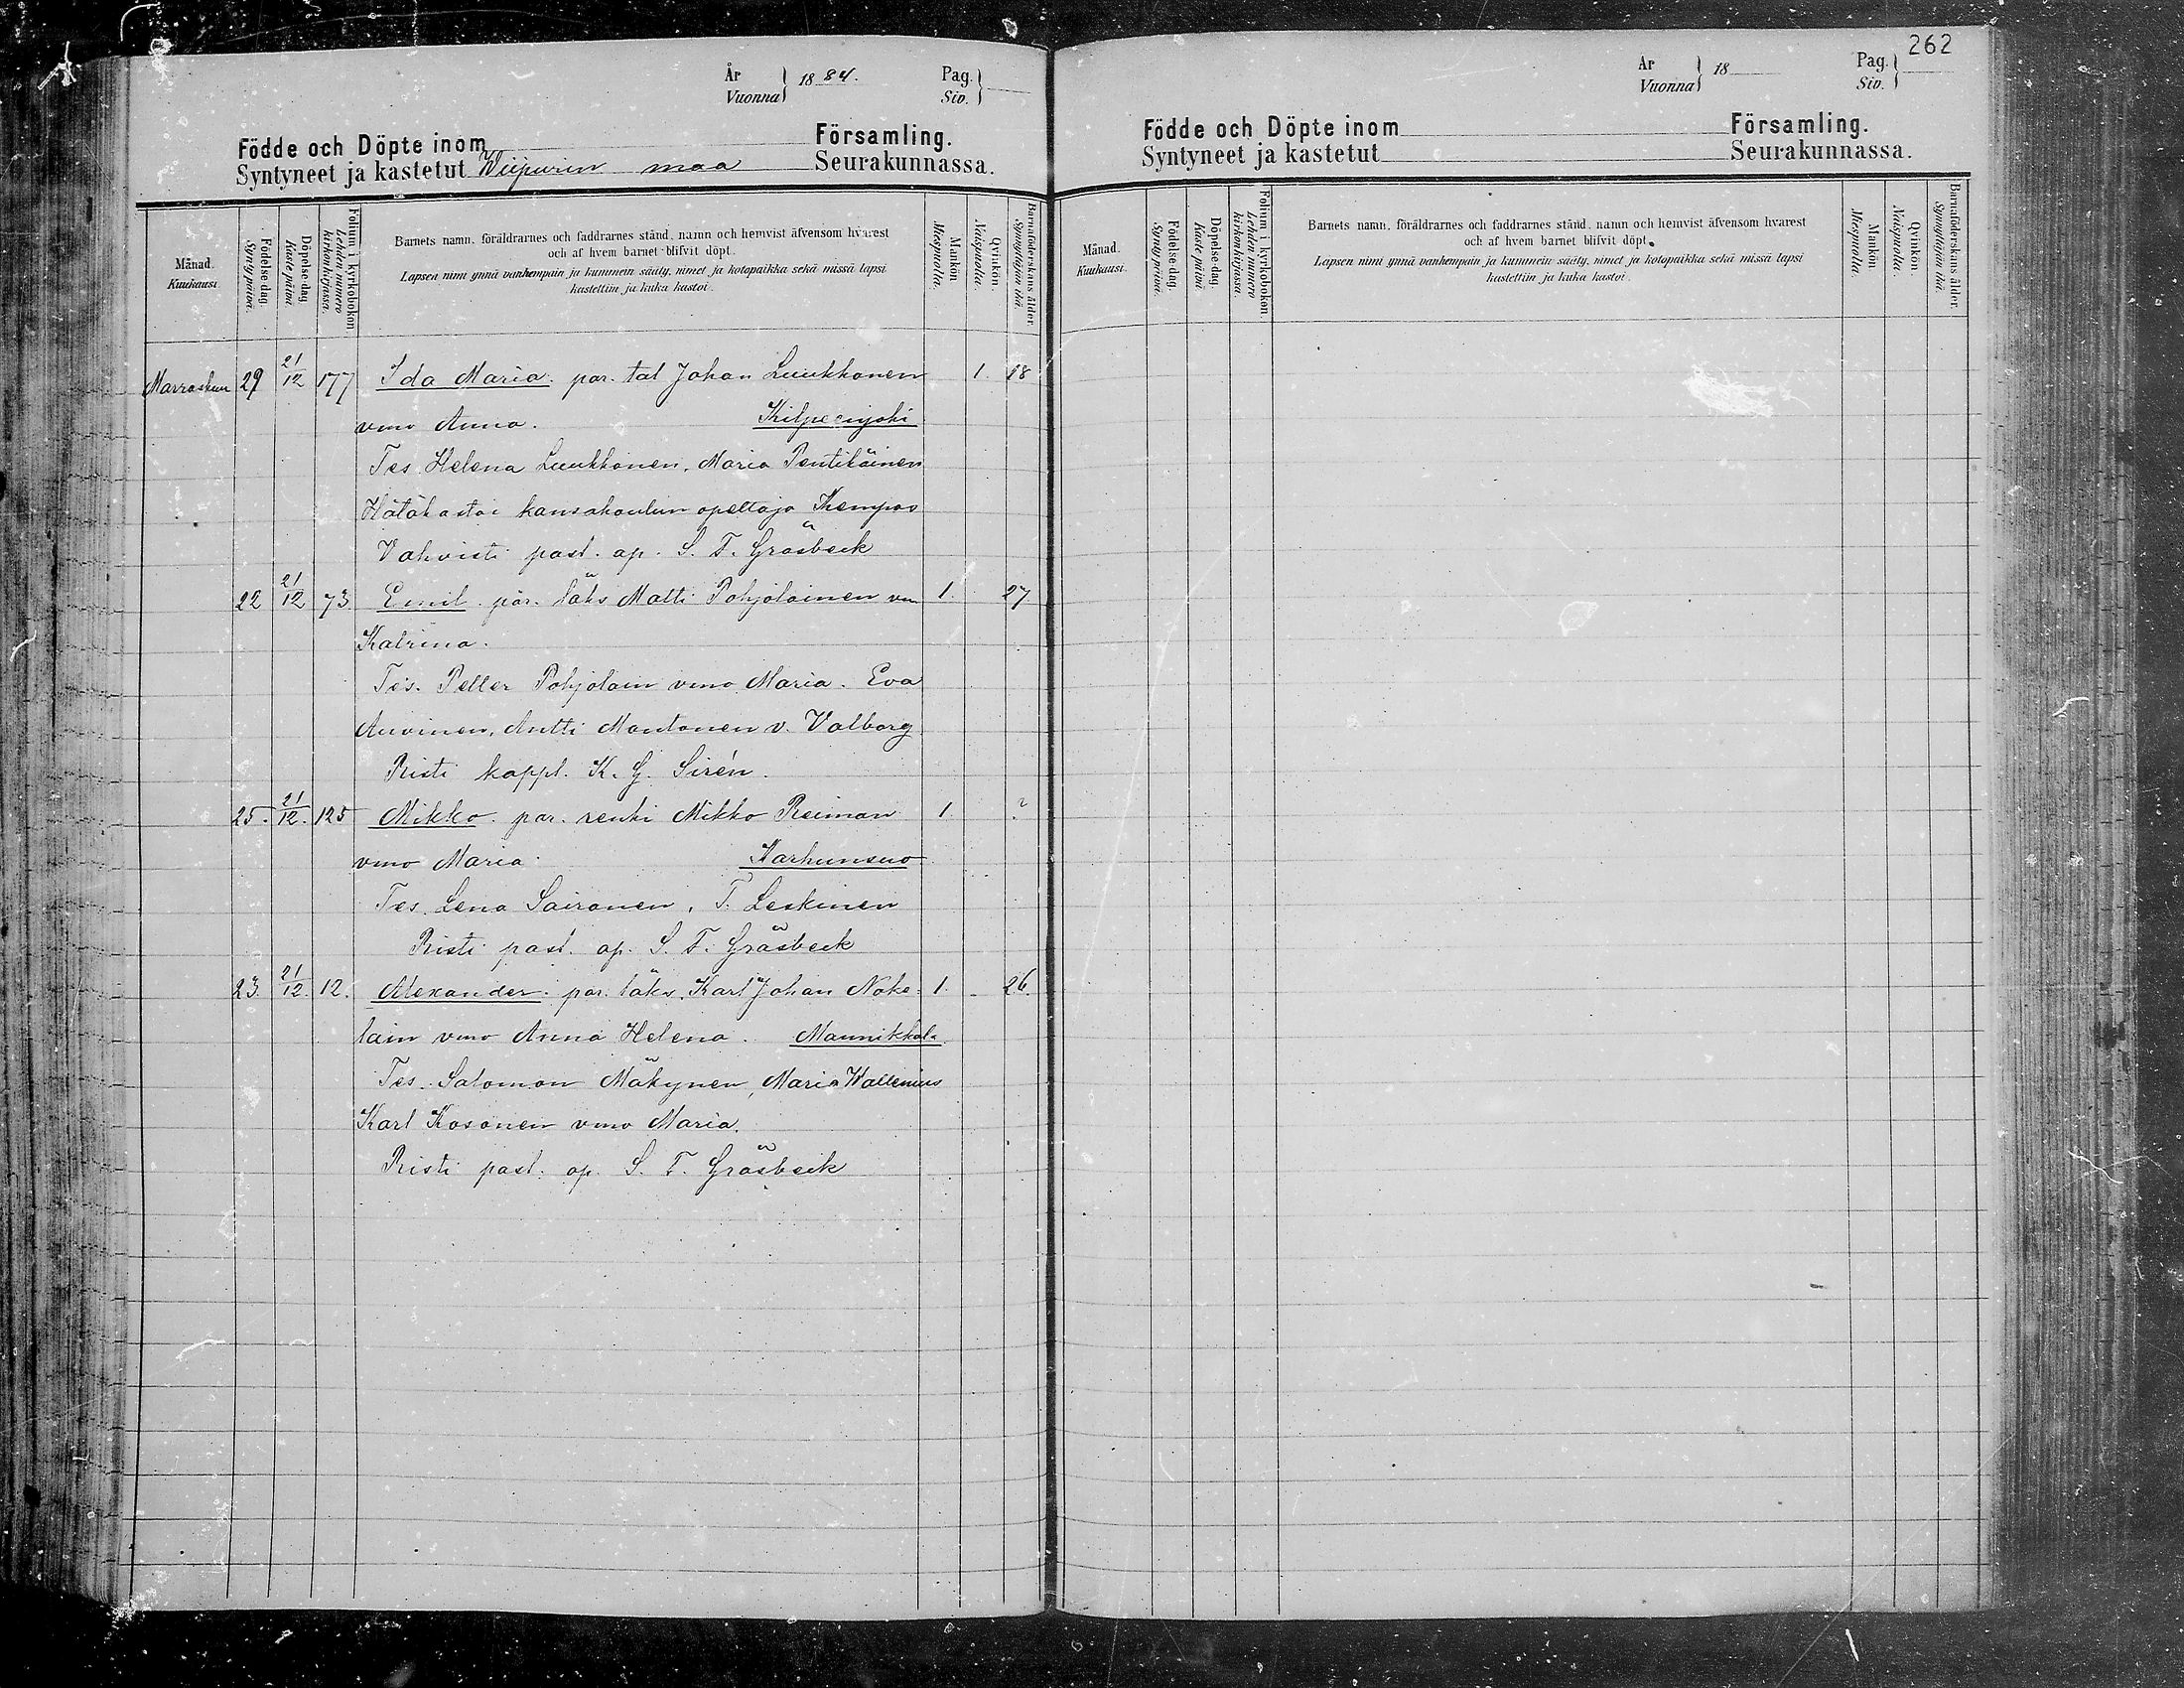 År
Vuonna } 1884. Pag.
Siv. }
Födde och Döpte inom Församling.
Syntyneet ja kastetut Wiipurin maa Seurakunnassa.
Månad.
Kuukausi.
Födelse-dag.
Syntypäivä.
Döpelse-dag.
Kaste päivä.
Folium i kyrkoboken
Lehden numero
kirkonkirjassa.
Barnets namn, föräldrarnes och faddrarnes stånd, namn och hemvist äfvensom hvarest
och af hvem barnet blifvit döpt.
Lapsen nimi ynnä vanhempain ja kummein sääty, nimet ja kotopaikka sekä missä lapsi
kastettiin ja kuka kastoi.
Mankön.
Miespuolia.
Qvinkön.
Naispuolia.
Barnaföderskans ålder.
Synnyttäjän ikä.
Marraskuu 29 21/12 177 Ida Maria. par. tal Johan Luukkonen 1. 18
vmo Anna. Kilpeenjoki
Tes. Helena Luukkonen, Maria Pentikäinen
Hätäkastoi kansakoulun opettaja Kempas
Vahvisti past. ap. S. F. Gräsbeck
22 21/12 73. Emil. par. läks Matti Pohjolainen vm 1. 27
Katrina.
Tes. Petter Pohjolain vmo Maria. Eva
Auvinen, Antti Montonen v. Valborg
Risti kappl. K. G. Sirén.
25. 21/12. 125 Mikko. par. renki Mikko Reiman 1. ?
vmo Maria. Karhunsuo
Tes. Lena Sairanen, T. Leskinen
Risti past. ap. S. F. Gräsbeck
23. 21/12. 12. Alexander. par. läks. Karl Johan Noke- 1. 26.
lain vmo Anna Helena. Mannikkala.
Tes. Salomon Mäkynen, Maria Wallenius
Karl Kosonen vmo Maria.
Risti past. ap. S. F. Gräsbeck
262
År
Vuonna } 18 Pag.
Siv. }
Födde och Döpte inom Församling.
Syntyneet ja kastetut Seurakunnassa.
Månad.
Kuukausi.
Födelse-dag.
Synty päivä.
Döpelse-dag.
Kaste päivä.
Folium i kyrkoboken
Lehden numero
kirkonkirjassa.
Barnets namn, föräldrarnes och faddrarnes stånd, namn och hemvist äfvensom hvarest
och af hvem barnet blifvit döpt.
Lapsen nimi ynnä vanhempain ja kummein sääty, nimet ja kotopaikka sekä missä lapsi
kastettiin ja kuka kastoi.
Mankön.
Miespuolia.
Qvinkön.
Naispuolia.
Barnaföderskans ålder.
Synnyttäjän ikä.